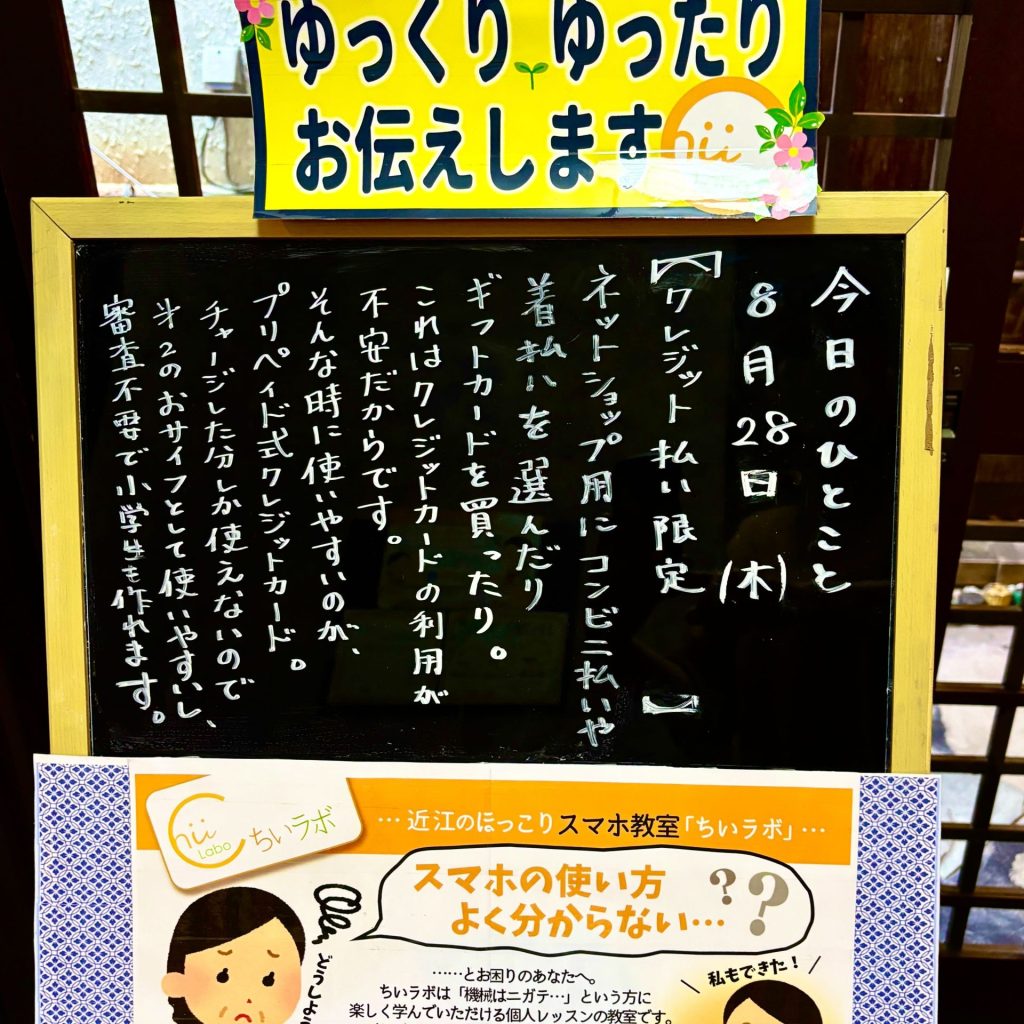 ゆっくり ゆったり
お伝えします
hii
今日のひとこと
8月28日(木)
【クレジット払い限定】
ネットショップ用にコンビニ払いや
着払いを選んだり
ギフトカードを買ったり。
これはクレジットカードの利用が
不安だからです。
そんな時に使いやすいのが、
プリペイド式クレジットカード。
チャージした分しか使えないので
㐧2のおサイフとして使いやすいし、
審査不要で小学生も作れます。
Chii Labo ちいラボ
…近江のほっこりスマホ教室「ちいラボ」…
スマホの使い方
よく分からない…??
どうしよう
……とお困りのあなたへ。
ちいラボは「機械はニガテ…」という方に
楽しく学んでいただける個人レッスンの教室です。
私もできた!